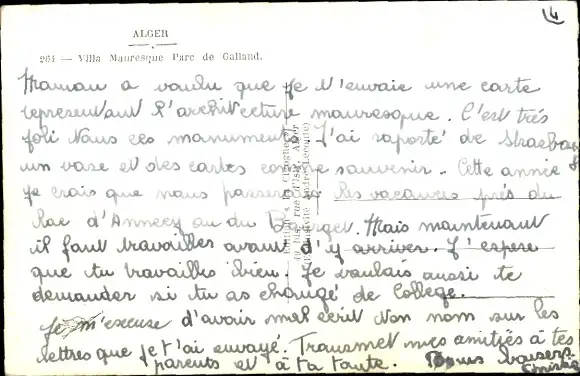 4
ALGER
264 — Villa Mauresque Parc de Galland.
Maman a voulu que je t'envoie une carte
representant l'architecture mauresque. C'est très
joli tous ces monuments. J'ai raporté de Strasbourg
un vase et des cartes comme souvenir. Cette année
je crois que nous passerons les vacances près du
lac d'Annecy ou du Bourget. Mais maintenant
il faut travailler avant d'y arriver. J'espère
que tu travailles bien. Je voulais aussi te
demander si tu as changé de College.
Je m'excuse d'avoir mal ecrit ton nom sur les
lettres que je t'ai envoyé. Transmet mes amitiés à tes
parents et à ta tante. Bons baisers